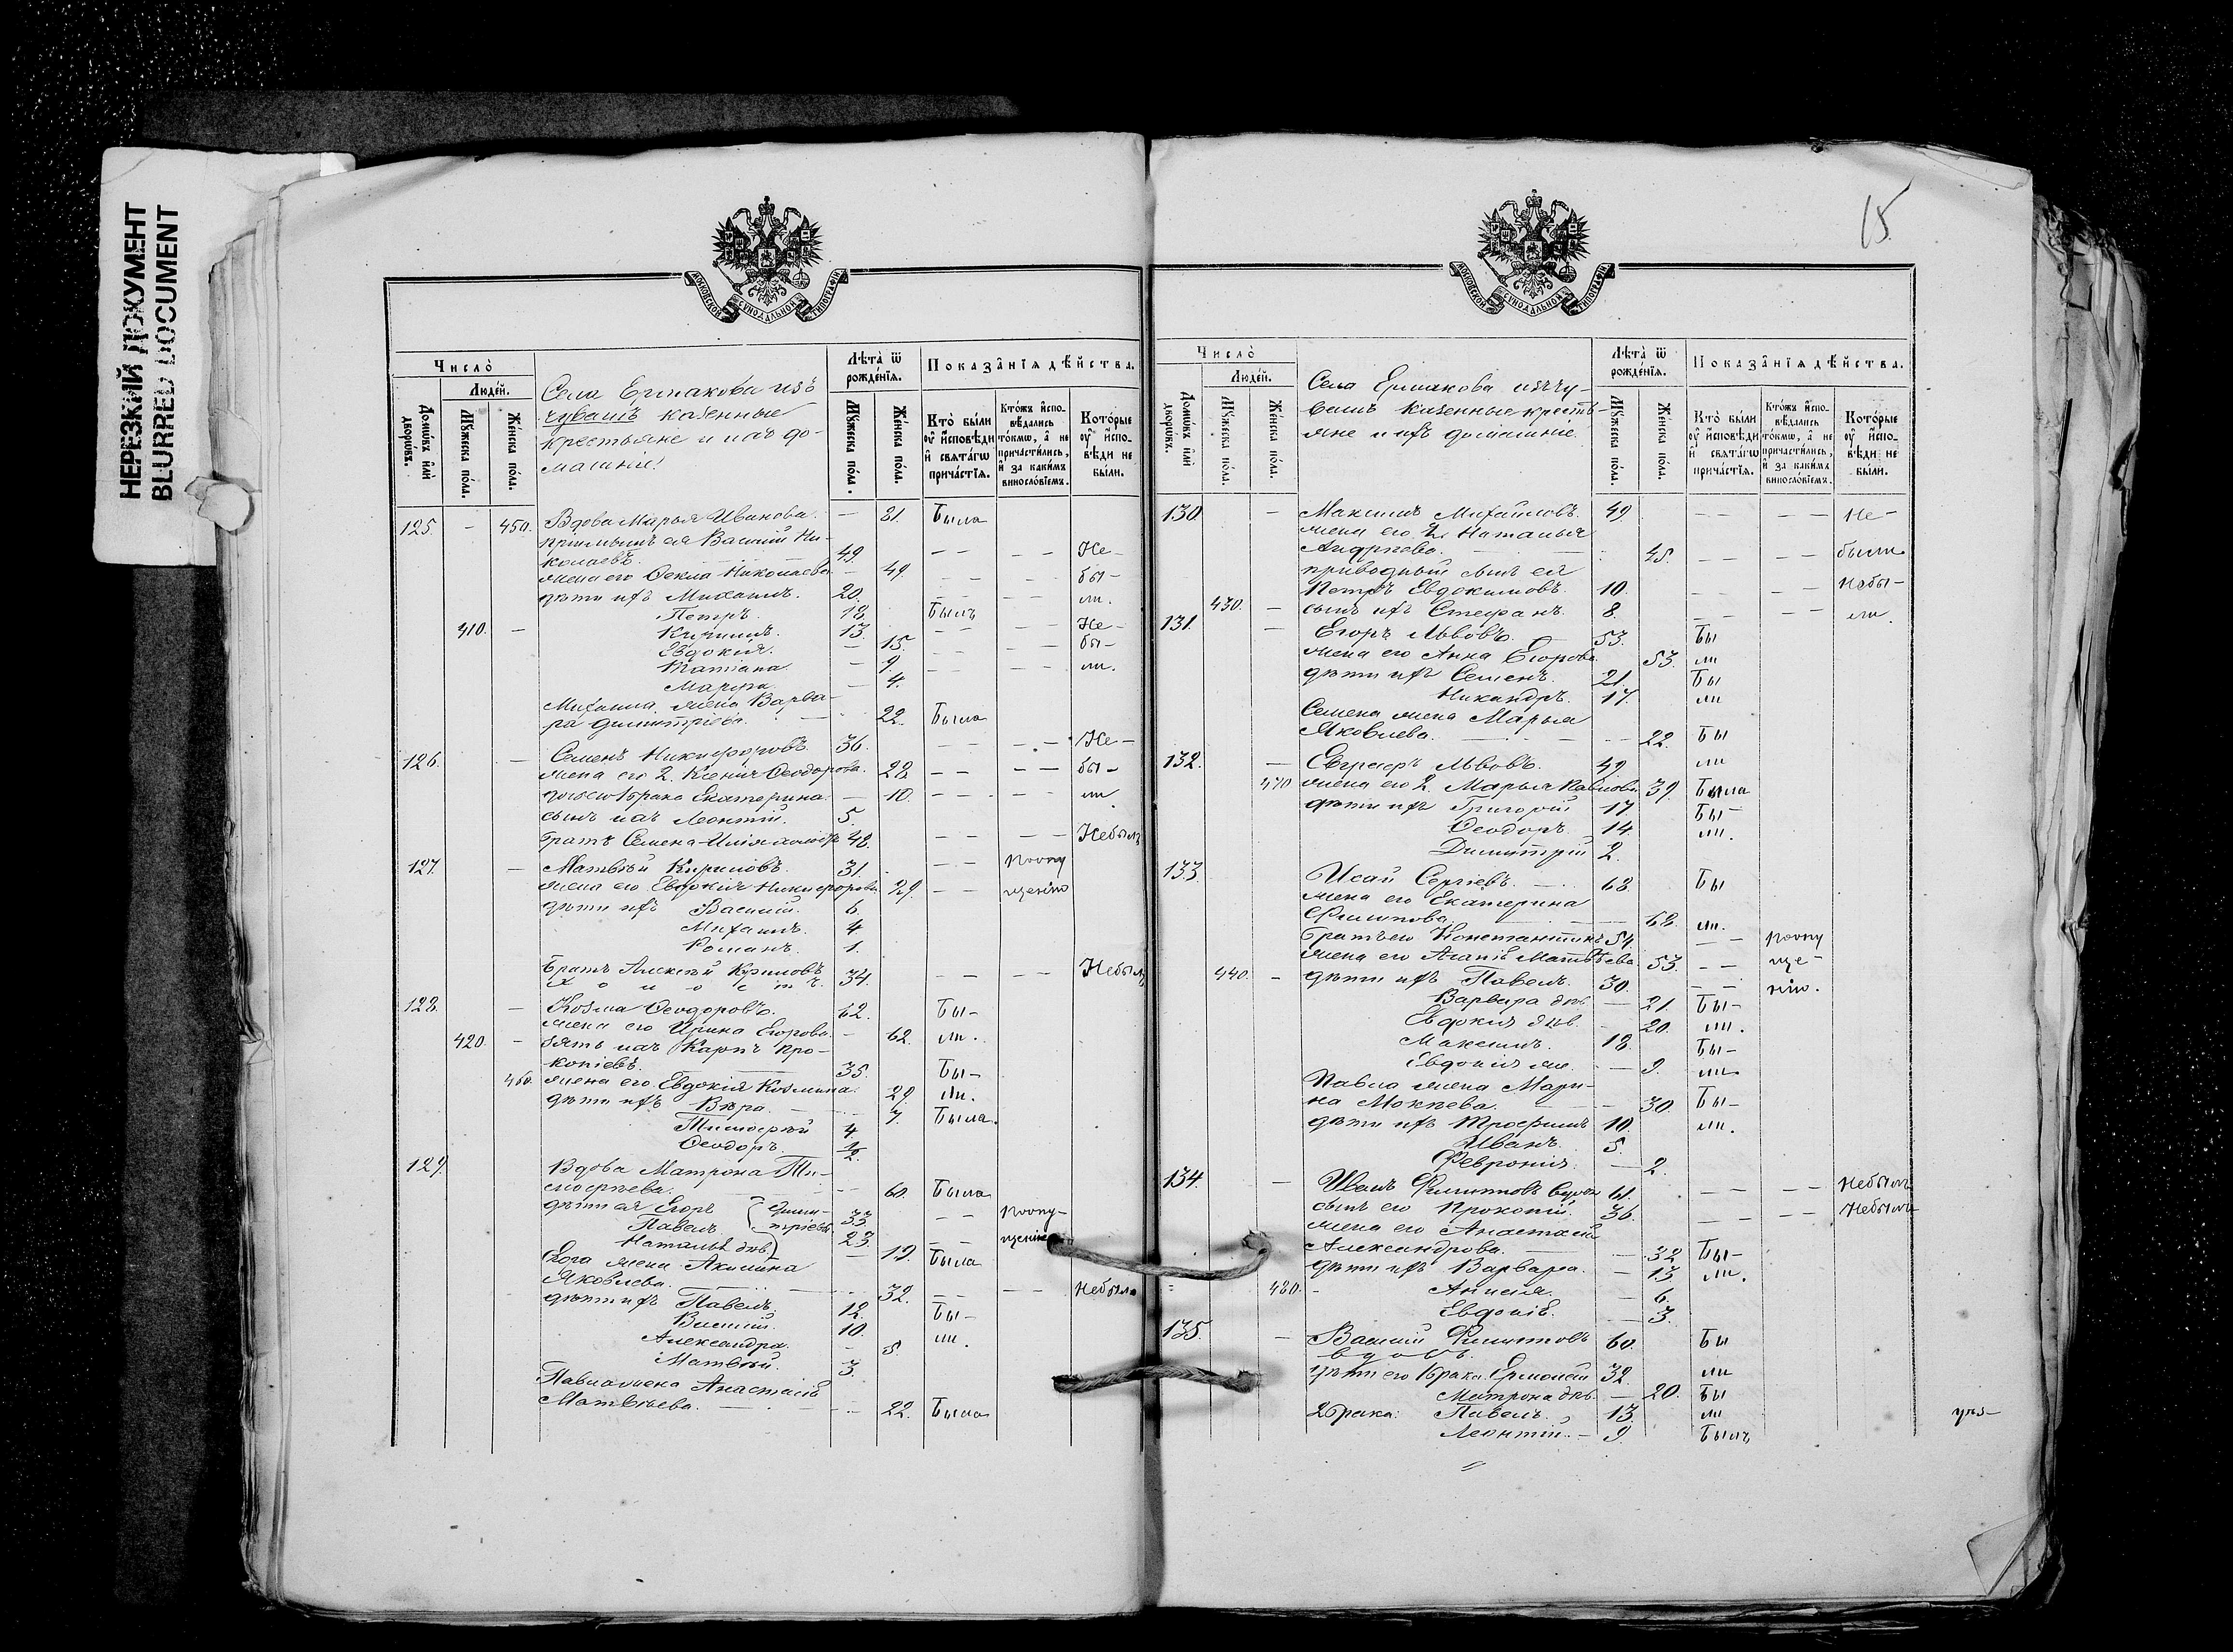 НЕРЕЗКИЙ ДОКУМЕНТ
BLURRED DOCUMENT
МОСКОВСКОЙ СѴНОДАЛЬНОЙ ТИПОГРАФІИ
Число̀
Людей.
Домѡвъ илѝ дворѡвъ.
Мꙋжеска пола.
Женска пола.
Села Ермакова изъ
чувашъ казенные
крестьяне и ихъ до-
машніе
Лѣта̀ ѿ рожденїѧ.
Мꙋжеска пола.
Женска пола.
Показанїѧ дѣйства.
Кто̀ были оу҆ исповѣди и҆ свѧтагѡ причастїѧ.
Ктожъ исповѣдались токмѡ, а҆ не причастились, и҆ за какимъ винословїемъ.
Которые оу҆ исповѣди не были.
125. – 450. Вдова Марья Иванова. – 81. Была
пріемышъ ея Василій Ни-
колаевъ. 49. – – Не-
жена его Ѳекла Николаева – 49. – – бы-
дѣти ихъ Михаилъ. 20. – – ли.
Петръ. 18. Былъ
410. – Кириллъ. 13. – – Не-
Евдокія. – 15. – – бы-
Татіана – 9. – – ли.
Марѳа – 4.
Михаила жена Варва-
ра Димитріева. – 22. Была
126. – Семенъ Никифоровъ. 36. – – Не-
жена его 2. Ксенія Ѳеодорова. 28 – – бы-
дочь 1 брака Екатерина. – 10. – – ли
сынъ ихъ Леонтій. 5.
братъ Семена Илія холостъ 48. – – Небылъ
127. – Матвѣй Кириловъ. 31. – – По опу
жена его Евдокія Никифорова 29. – – щенію
дѣти ихъ Василій. 6.
Михаилъ. 4.
Романъ. 1.
братъ Алексѣй Кириловъ
холостъ. 34. – – Небылъ
128. – Козма Ѳеодоровъ. 62. Бы-
жена его Ирина Егорова. – 62. ли.
420. – зять ихъ Карпъ Про-
копіевъ. 35. Бы-
460. жена его Евдокія Козмина. 29. ли.
дѣти ихъ Вѣра. – 7. Была.
Тимоѳей 4.
Ѳеодоръ. 1/2.
129. Вдова Матрона Ти-
моѳеева. – 60. Была
дѣти ея Егоръ Дими- 33. – – По опу-
Павелъ тріевы 23. – – щенію
Наталья дѣв. – 19. Была
Егора жена Акилина
Яковлева. – 32. – – Небыла
дѣти ихъ Павелъ 12. Бы-
Василій. 10. ли.
Александра – 5.
Матвѣй. 3.
Павла жена Анастасія
Матвѣева. – 22. Была
15.
МОСКОВСКОЙ СѴНОДАЛЬНОЙ ТИПОГРАФІИ
Число̀
Людей.
Домѡвъ илѝ дворѡвъ.
Мꙋжеска пола.
Женска пола.
Села Ермакова изъ чу-
вашъ казенные кресть-
яне и ихъ домашніе.
Лѣта̀ ѿ рожденїѧ.
Мꙋжеска пола.
Женска пола.
Показанїѧ дѣйства.
Кто̀ были оу҆ исповѣди и҆ свѧтагѡ причастїѧ.
Ктожъ исповѣдались токмѡ, а҆ не причастились, и҆ за какимъ винословїемъ.
Которые оу҆ исповѣди не были.
130. – Максимъ Михайловъ. 49. – – Не-
жена его 2. Наталья
Андреева. 45. – – были.
приводный сынъ ея
Петръ Евдокимовъ. 10. – – Небы-
430. – сынъ ихъ Стефанъ. 8. – – ли.
131. – Егоръ Львовъ. 53. Бы
жена его Анна Егорова. 53. ли
дѣти ихъ Семенъ. 21. Бы
Никандръ. 17. ли
Семена жена Марья
Яковлева. – 22. Бы
132. – Евграфъ Львовъ. 49. ли
470 жена его 2. Марья Павлова 39. Была
дѣти ихъ Григорій 17. Бы-
Ѳеодоръ. 14. ли.
Димитрій 2.
133. Исай Сергіевъ. 68. Бы
жена его Екатерина
Филипова. – 68. ли.
братъ его Константинъ 54. – – По опу
жена его Агапія Матвѣева 53. – – ще-
440. – дѣти ихъ Павелъ. 30. – – нію.
Варвара дѣв. – 21. Бы-
Евдокія дѣв. – 20. ли.
Максимъ. 18. Бы-
Евдокія – 9. ли.
Павла жена Мари-
на Мокѣева. – 30. Бы-
дѣти ихъ Трофимъ 10. ли.
Иванъ. 5.
Февронія. – 2.
134. – Иванъ Филиповъ вдовъ 61. – – Небылъ
сынъ его Прокопій. 36. – – Небылъ
жена его Анастасія
Александрова. – 32 Бы-
дѣти ихъ Варвара. – 13 ли.
480. – Анисія. – 6.
Евдокія. – 3.
135. – Василій Филиповъ
вдовъ. 60. Бы
дѣти его 1 брака Ермолай 32. ли
Матрона дѣв. – 20. Бы
2 брака: Павелъ. 13. ли
Леонтій. – 9. Былъ